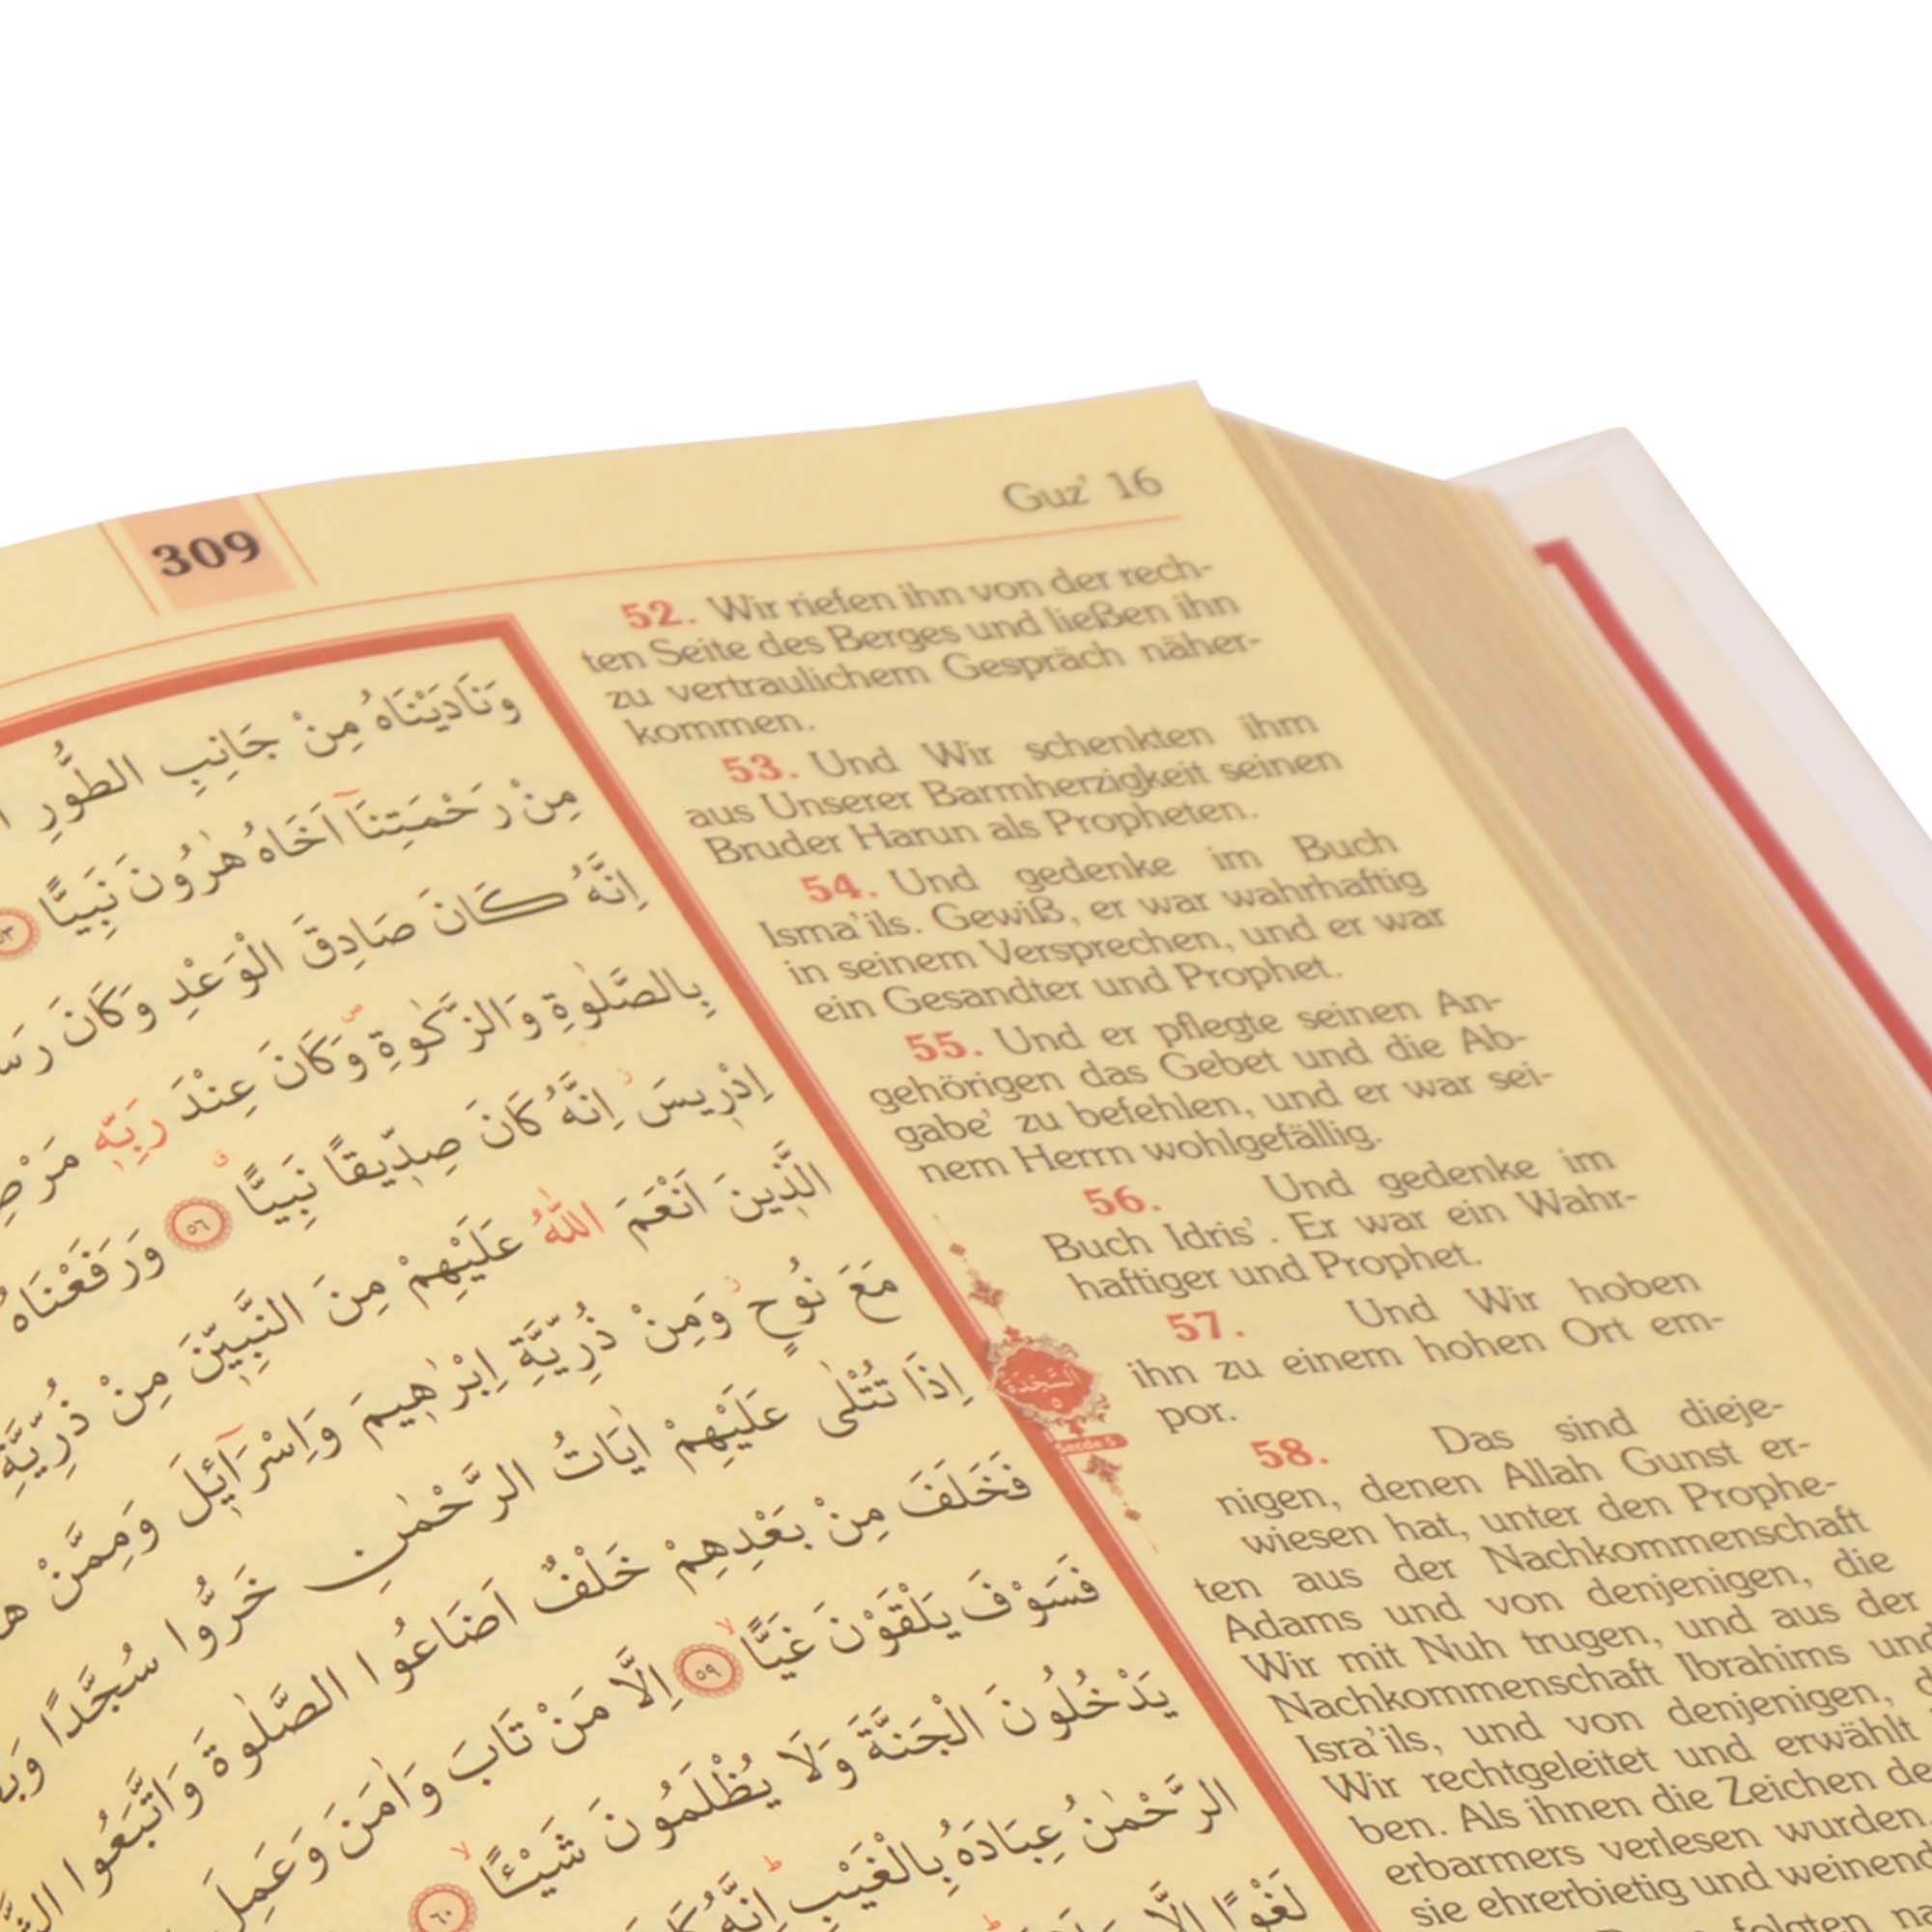 309
Guz' 16
وَنَادَيْنَاهُ مِنْ جَانِبِ الطُّورِ
مِنْ رَحْمَتِنَآ اَخَاهُ هٰرُونَ نَبِيًّا ٥٣
اِنَّهُ كَانَ صَادِقَ الْوَعْدِ وَكَانَ
بِالصَّلٰوةِ وَالزَّكٰوةِ وَكَانَ عِنْدَ رَبِّه۪
اِدْر۪يسَ اِنَّهُ كَانَ صِدّ۪يقًا نَبِيًّا ٥٦ وَرَفَعْنَاهُ
الَّذ۪ينَ اَنْعَمَ اللّٰهُ عَلَيْهِمْ مِنَ النَّبِيّ۪نَ مِنْ ذُرِّيَّةِ
مَعَ نُوحٍ وَمِنْ ذُرِّيَّةِ اِبْرٰه۪يمَ وَاِسْرَآئ۪لَ وَمِمَّنْ
اِذَا تُتْلٰى عَلَيْهِمْ اٰيَاتُ الرَّحْمٰنِ خَرُّوا سُجَّدًا
فَخَلَفَ مِنْ بَعْدِهِمْ خَلْفٌ اَضَاعُوا الصَّلٰوةَ وَاتَّبَعُوا
فَسَوْفَ يَلْقَوْنَ غَيًّا ٥٩ اِلَّا مَنْ تَابَ وَاٰمَنَ وَعَمِلَ
يَدْخُلُونَ الْجَنَّةَ وَلَا يُظْلَمُونَ شَيْـًٔا ٦٠
الرَّحْمٰنُ عِبَادَهُ بِالْغَيْبِ اِنَّهُ
لَغْوًا اِلَّا
52. Wir riefen ihn von der rech-
ten Seite des Berges und ließen ihn
zu vertraulichem Gespräch näher-
kommen.
53. Und Wir schenkten ihm
aus Unserer Barmherzigkeit seinen
Bruder Harun als Propheten.
54. Und gedenke im Buch
Isma'ils. Gewiß, er war wahrhaftig
in seinem Versprechen, und er war
ein Gesandter und Prophet.
55. Und er pflegte seinen An-
gehörigen das Gebet und die Ab-
gabe' zu befehlen, und er war sei-
nem Herrn wohlgefällig.
56. Und gedenke im
Buch Idris'. Er war ein Wahr-
haftiger und Prophet.
57. Und Wir hoben
ihn zu einem hohen Ort em-
por.
السَّجْدَة
58. Das sind dieje-
nigen, denen Allah Gunst er-
wiesen hat, unter den Prophe-
ten aus der Nachkommenschaft
Adams und von denjenigen, die
Wir mit Nuh trugen, und aus der
Nachkommenschaft Ibrahims und
Isra'ils, und von denjenigen,
Wir rechtgeleitet und erwählt
ben. Als ihnen die Zeichen
erbarmers verlesen wurden,
sie ehrerbietig und weinend
folgten